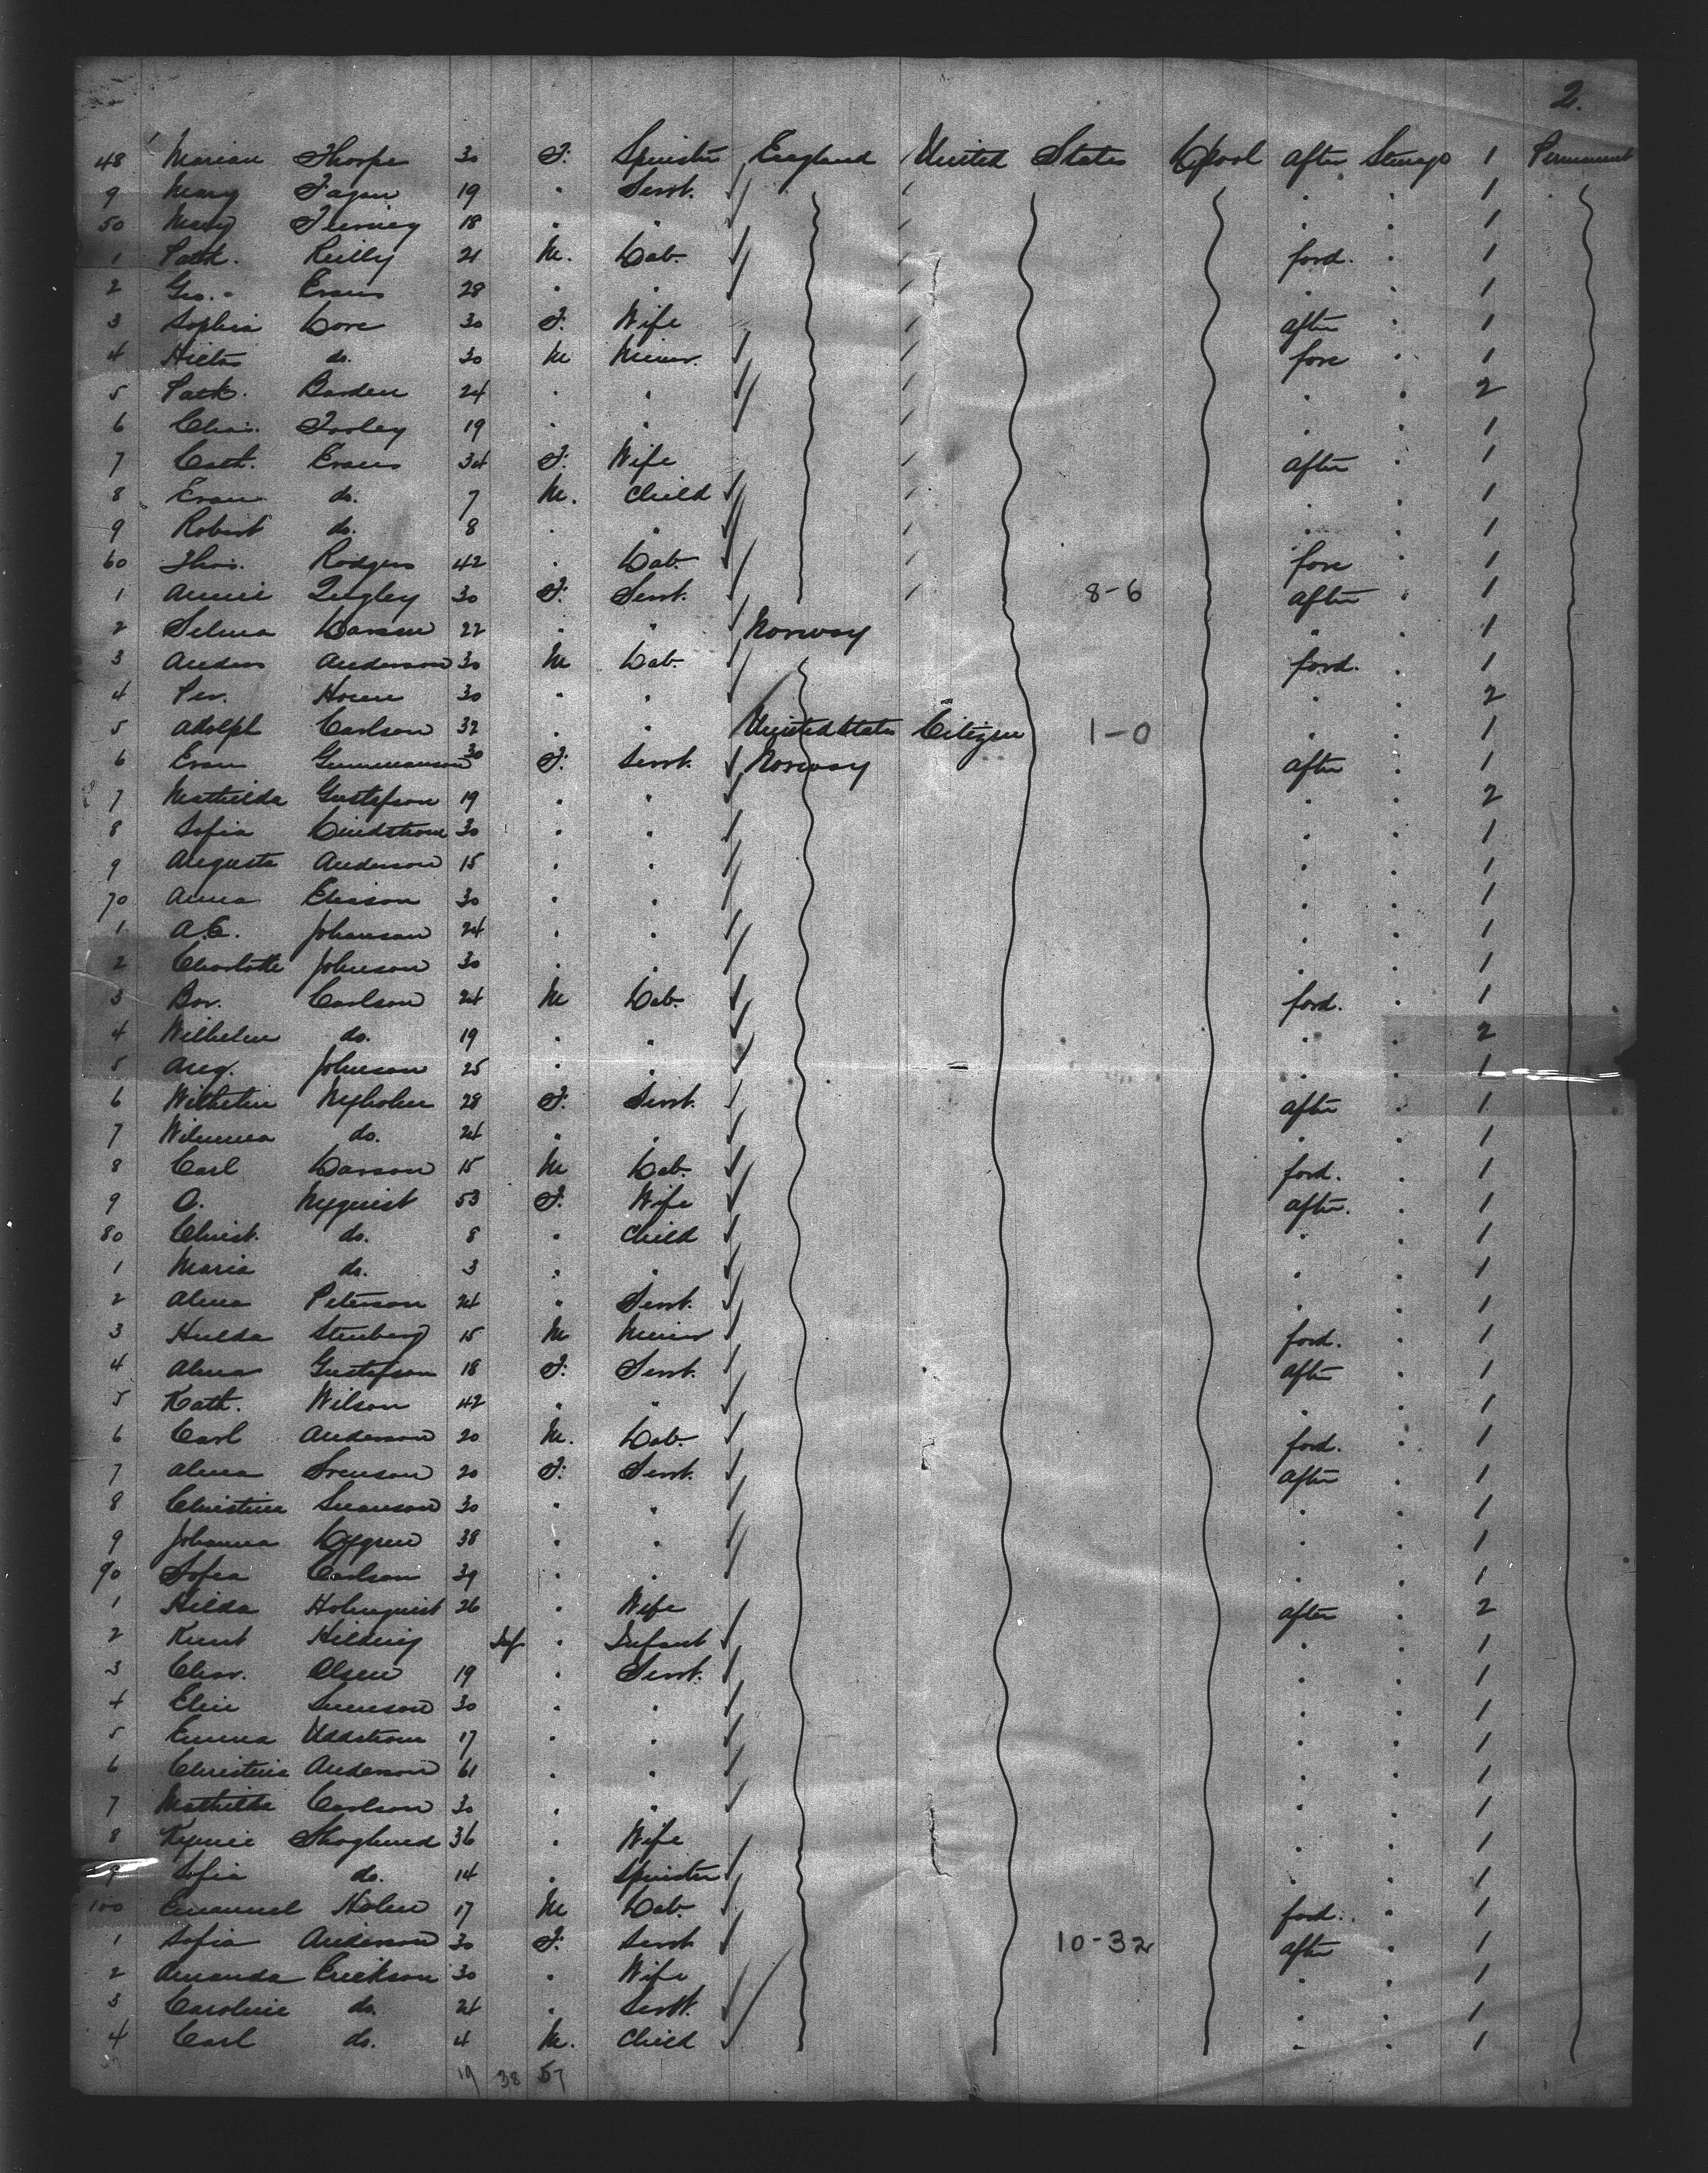 2.
48 Marian Thorpe 30 F. Spinster England United States L'pool after Steerage 1 Permanent
9 Mary Fagan 19 " Servt. " " 1
50 Mary Tierney 18 " " " " 1
1 Patk. Reilly 21 M. Lab. ford. " 1
2 Geo. Evans 28 " " " " 1
3 Sophia Love 30 F. Wife after " 1
4 do. 30 M Miner. fore " 1
5 Patk. Barden 24 " " " " 2
6 Chas. Farley 19 " " " " 1
7 Cath. Evans 34 F. Wife after " 1
8 Evan do. 7 M. Child " " 1
9 Robert do. 8 " " " " 1
60 Thos. Rodgers 42 " Lab. fore " 1
1 Annie Quigley 30 F. Servt. 8-6 after " 1
2 Selma Larsen 22 " " Norway " " 1
3 Anders Anderson 30 M Lab. ford. " 1
4 Per. 30 " " " " 2
5 Adolph Carlson 32 " " United States Citizen 1-0 " " 1
6 Evan Gunnmanson 30 F. Servt. Norway after " 1
7 Mathilda Gustafson 19 " " " " 2
8 Sofia Lindstrom 30 " " " " 1
9 Augusta Anderson 15 " " " " 1
70 Anna Elisson 30 " " " " 1
1 A.C. Johanson 24 " " " " 1
2 Charlotte Johnson 30 " " " " 1
3 Carlson 24 M Lab. ford. " 1
4 Wilhelm do. 19 " " " " 2
5 Aug. Johnson 25 " " " " 1
6 Wilhelm Nyholm 28 F. Servt. after " 1
7 do. 24 " " " " 1
8 Carl Larson 15 M Lab. ford. " 1
9 C. Nyquist 53 F. Wife after. " 1
80 Christ. do. 8 " Child " " 1
1 Maria do. 3 " " " " 1
2 Alma Peterson 24 " Servt. " " 1
3 Hulda Stenberg 15 M Miner ford. " 1
4 Alma Gustafson 18 F. Servt. after " 1
5 Kath. Wilson 42 " " " " 1
6 Carl Anderson 20 M. Lab. ford. " 1
7 Alma Svenson 20 F. Servt. after " 1
8 Christina Swanson 30 " " " " 1
9 Johanna Lofgren 38 " " " " 1
90 Sofia Carlson 39 " " " " 1
1 Hilda Holmquist 26 " Wife after " 2
2 Knut Hilding Inf " Infant " " 1
3 Olsen 19 " Servt. " " 1
4 Elin Svenson 30 " " " " 1
5 Emma Uddstrom 17 " " " " 1
6 Christina Anderson 61 " " " " 1
7 Mathilda Carlson 30 " " " " 1
8 Skoglund 36 " Wife " " 1
9 Sofia do. 14 " Spinster " " 1
100 Emanuel Holm 17 M Lab. ford. " 1
1 Sofia Anderson 30 F. Servt 10-32 after " 1
2 Amanda Erickson 30 " Wife " " 1
3 Caroline do. 24 " Servt. " " 1
4 Carl do. 4 M. Child " " 1
19 38 57